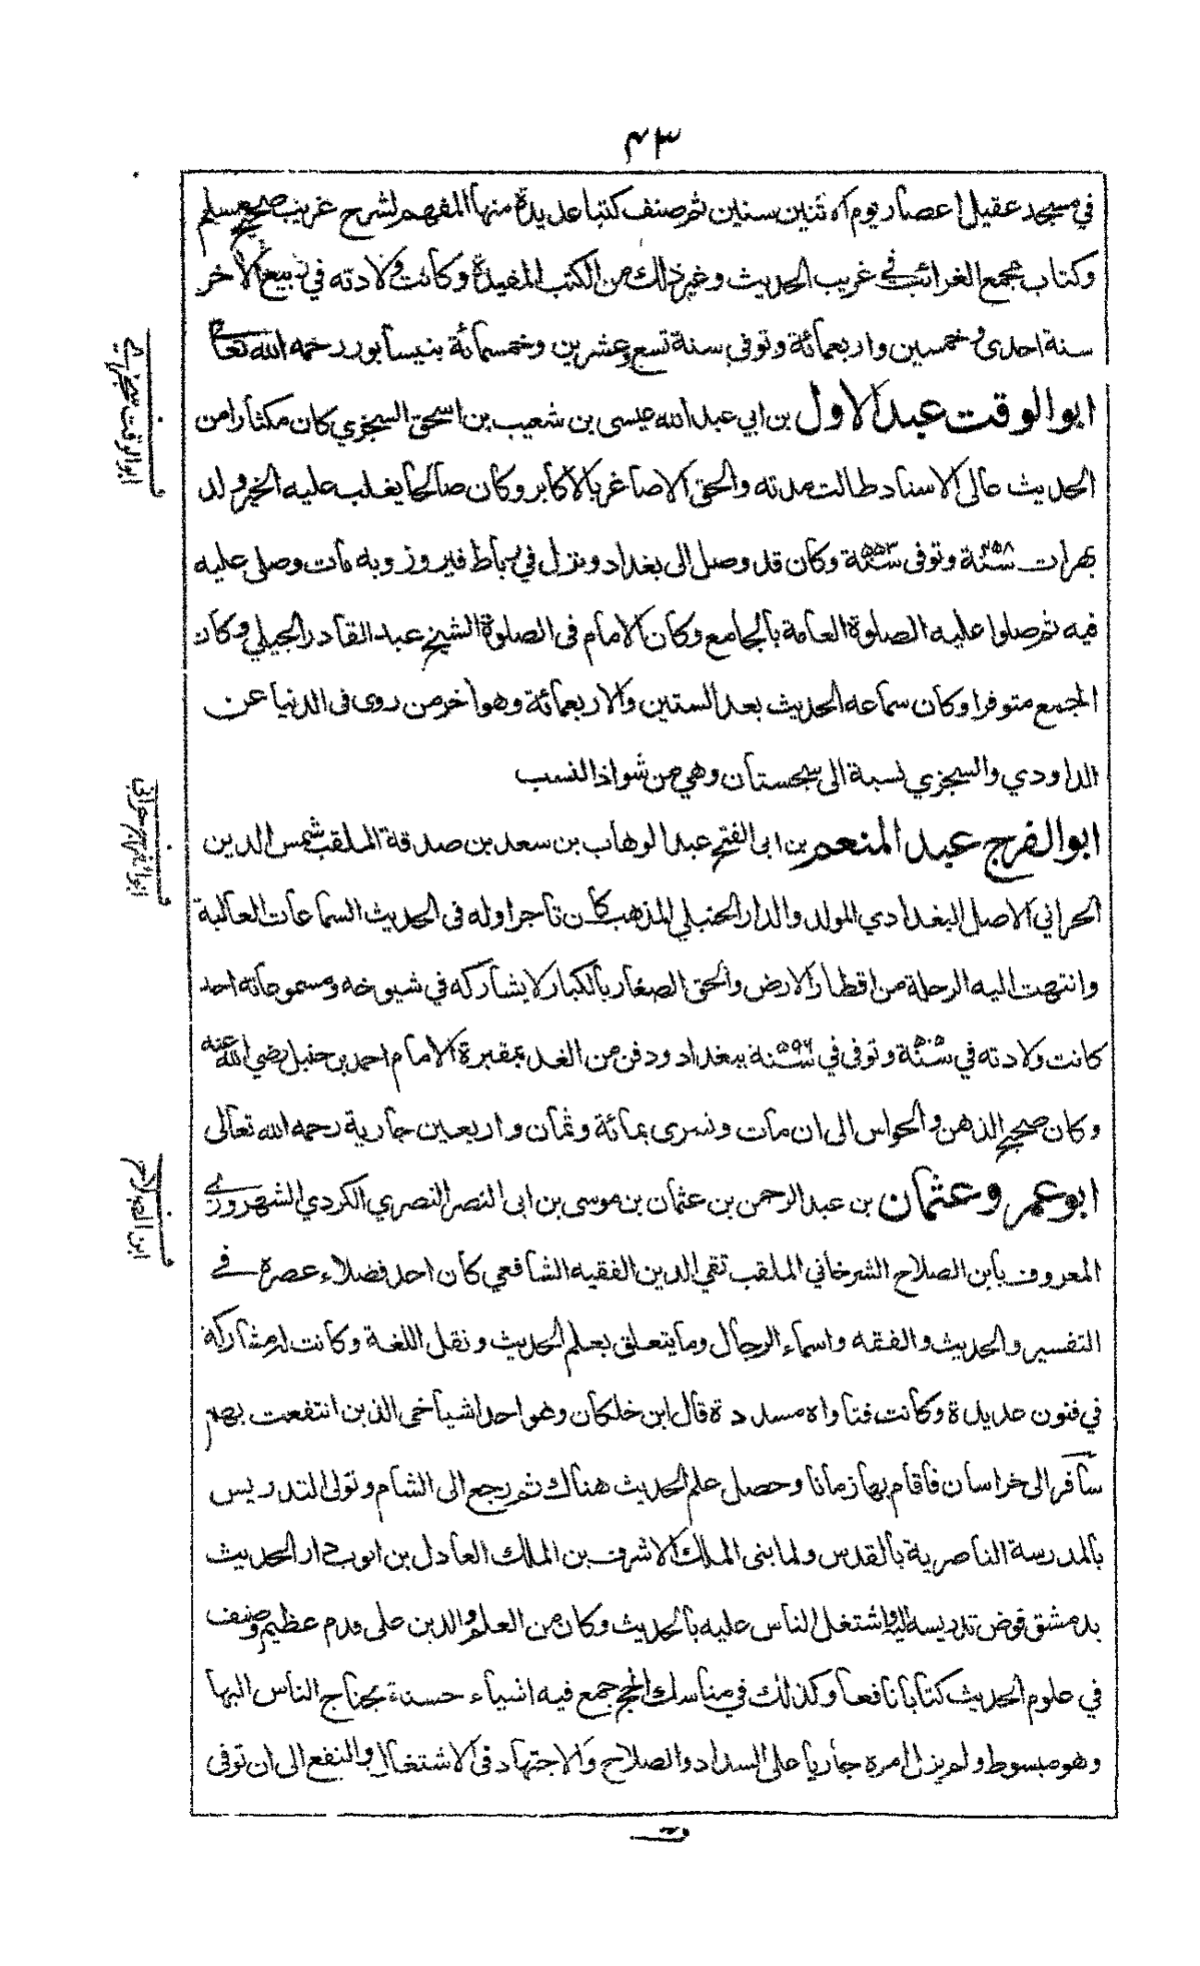 ٤٣
في مسجد عقيل اعصار يوم الاثنين سنين ثم صنف كتبا عديدة منها المفهم لشرح غريب صحيح مسلم
وكتاب مجمع الغرائب في غريب الحديث وغير ذلك من الكتب المفيدة وكانت ولادته في ربيع الآخر
سنة احدى وخمسين واربعمائة وتوفي سنة تسع وعشرين وخمسمائة بنيسابور رحمه الله تعالى
ابو الوقت عبد الاول بن ابي عبد الله عيسى بن شعيب بن اسحق السجزي كان مكثارا من
الحديث عالى الاسناد طالت مدته والحق الاصاغر بالاكابر وكان صالحا يغلب عليه الخير ولد
بهرات سنة ٤٥٨ وتوفى سنة ٥٥٣ وكان قد وصل الى بغداد ونزل في رباط فيروز وبه مات وصلى عليه
فيه ثم صلوا عليه الصلوة العامة بالجامع وكان الامام فى الصلوة الشيخ عبد القادر الجيلي وكان
الجمع متوفرا وكان سماعه الحديث بعد الستين والاربعمائة وهو اخر من روى فى الدنيا عن
الداودي والسجزي نسبة الى سجستان وهي من شواذ النسب
ابو الفرج عبد المنعم بن ابى الفتح عبد الوهاب بن سعد بن صدقة الملقب شمس الدين
الحراني الاصل البغدادي المولد والدار الحنبلي المذهب كان تاجرا وله فى الحديث السماعات العالية
وانتهت اليه الرحلة من اقطار الارض والحق الصغار بالكبار لا يشاركه في شيوخه ومسموعاته احد
كانت ولادته في سنة ٥٠٥ وتوفى في سنة ٥٩٦ ببغداد ودفن من الغد بمقبرة الامام احمد بن حنبل رضي الله عنه
وكان صحيح الذهن والحواس الى ان مات وتسرى بمائة وثمان واربعين جارية رحمه الله تعالى
ابو عمر وعثمان بن عبد الرحمن بن عثمان بن موسى بن ابى النصر النصري الكردي الشهروزي
المعروف بابن الصلاح الشرخاني الملقب تقي الدين الفقيه الشافعي كان احد فضلاء عصره في
التفسير والحديث والفقه واسماء الرجال وما يتعلق بعلم الحديث ونقل اللغة وكانت له مشاركة
في فنون عديدة وكانت فتاواه مسددة قال ابن خلكان وهو احد اشياخى الذين انتفعت بهم
سافر الى خراسان فاقام بها زمانا وحصل علم الحديث هناك ثم رجع الى الشام وتولى التدريس
بالمدرسة الناصرية بالقدس ولما بنى الملك الاشرف بن الملك العادل بن ايوب دار الحديث
بدمشق فوض تدريسه اليه واشتغل الناس عليه بالحديث وكان من العلم والدين على قدم عظيم وصنف
في علوم الحديث كتابا نافعا وكذلك في مناسك الحج جمع فيه اشياء حسنة يحتاج الناس اليها
وهو مبسوط ولم يزل امره جاريا على السداد والصلاح والاجتهاد فى الاشتغال والنفع الى ان توفى
ابو الوقت سجزي
ابو الفرج حراني
ابن الصلاح